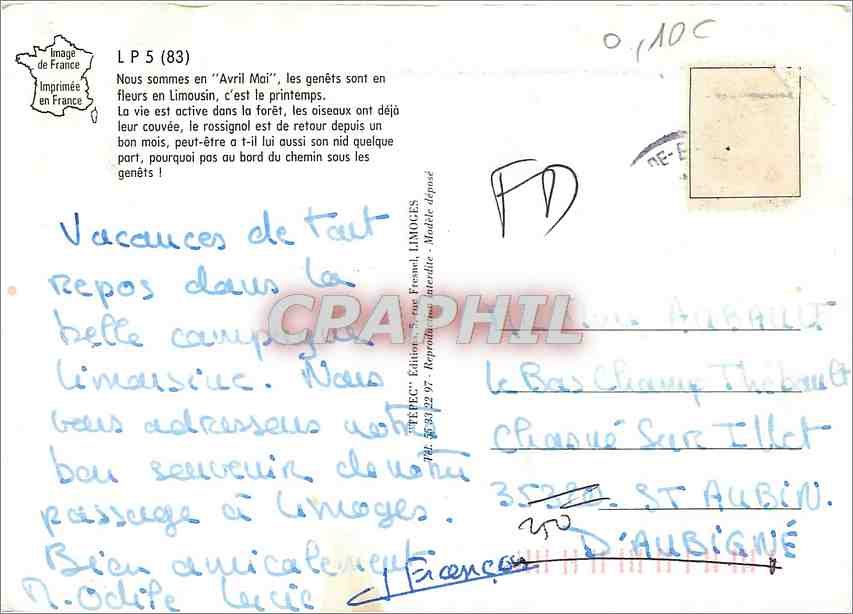 Image
de France
Imprimée
en France
L P 5 (83)
Nous sommes en "Avril Mai", les genêts sont en
fleurs en Limousin, c'est le printemps.
La vie est active dans la forêt, les oiseaux ont déjà
leur couvée, le rossignol est de retour depuis un
bon mois, peut-être a t-il lui aussi son nid quelque
part, pourquoi pas au bord du chemin sous les
genêts !
0,10€
FD
Vacances de tout
repos dans la
belle campagne
limousine. Nous
vous adressons notre
bon souvenir de notre
passage à Limoges.
Bien amicalement
M. Odile Lucie François
"TÉPEC" Éditions, 5, rue Fresnel, LIMOGES
Tél. 55 33 22 97 - Reproduction interdite - Modèle déposé
CPAPHIL
Mme AUBAULT
Le Bas Champ Thébault
Chasné Sur Illet
35 ST AUBIN
250
D'AUBIGNÉ